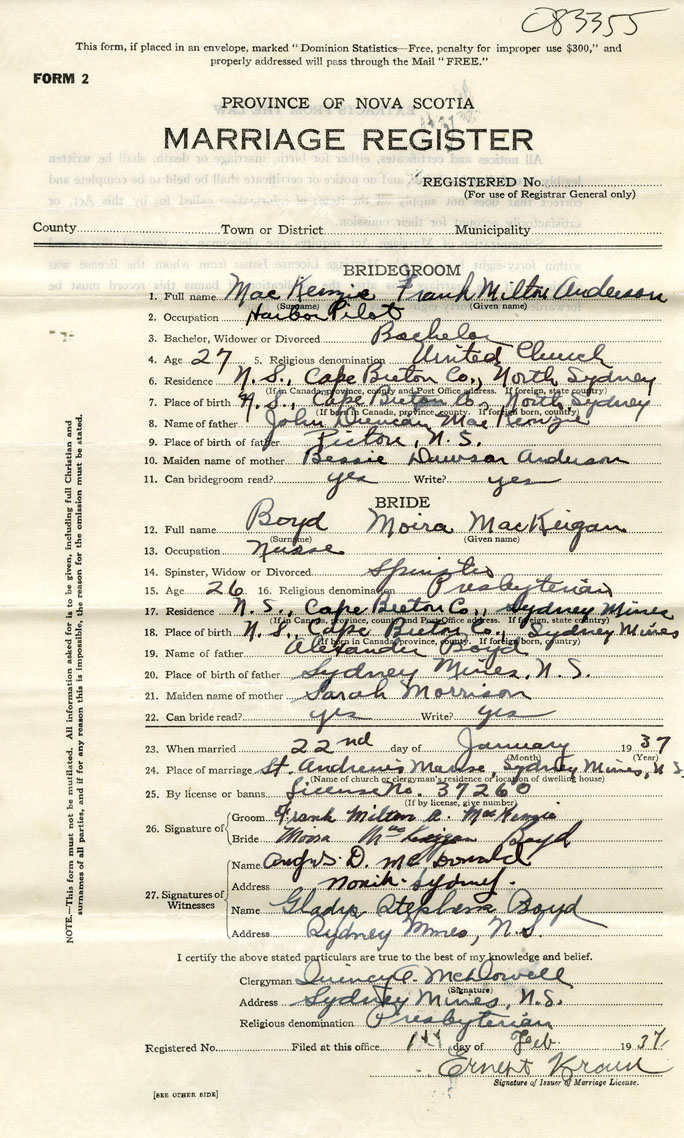 083355
This form, if placed in an envelope, marked "Dominion Statistics—Free, penalty for improper use $300," and
properly addressed will pass through the Mail "FREE."
FORM 2
PROVINCE OF NOVA SCOTIA
MARRIAGE REGISTER
REGISTERED No.
(For use of Registrar General only)
County Town or District Municipality
BRIDEGROOM
1. Full name MacKenzie Frank Milton Anderson
(Surname) (Given name)
2. Occupation Harbor Pilot
3. Bachelor, Widower or Divorced Bachelor
4. Age 27 5. Religious denomination United Church
6. Residence N.S., Cape Breton Co., North Sydney
(If in Canada, province, county and Post Office address. If foreign, state country)
7. Place of birth N.S., Cape Breton Co., North Sydney
(If born in Canada, province, county. If foreign born, country)
8. Name of father John Duncan MacKenzie
9. Place of birth of father Pictou, N.S.
10. Maiden name of mother Bessie Dawson Anderson
11. Can bridegroom read? yes Write? yes
BRIDE
12. Full name Boyd Moira MacKeigan
(Surname) (Given name)
13. Occupation Nurse
14. Spinster, Widow or Divorced Spinster
15. Age 26 16. Religious denomination Presbyterian
17. Residence N.S., Cape Breton Co., Sydney Mines
(If in Canada, province, county and Post Office address. If foreign, state country)
18. Place of birth N.S., Cape Breton Co., Sydney Mines
(If born in Canada, province, county. If foreign born, country)
19. Name of father Alexander Boyd
20. Place of birth of father Sydney Mines, N.S.
21. Maiden name of mother Sarah Morrison
22. Can bride read? yes Write? yes
23. When married 22nd day of January 1937
(Month) (Year)
24. Place of marriage St. Andrew's Manse, Sydney Mines, N.S.
(Name of church or clergyman's residence or location of dwelling house)
25. By license or banns License No. 37260
(If by license, give number)
26. Signature of
Groom Frank Milton A. MacKenzie
Bride Moira MacKeigan Boyd
27. Signatures of Witnesses
Name Angus D. McDonald
Address North Sydney.
Name Gladys Stephens Boyd
Address Sydney Mines, N.S.
I certify the above stated particulars are true to the best of my knowledge and belief.
Clergyman Quincy A. McDowell
(Signature)
Address Sydney Mines, N.S.
Religious denomination Presbyterian
Registered No. Filed at this office 1st day of Feb 1937
Ernest
Signature of Issuer of Marriage License.
[SEE OTHER SIDE]
NOTE.—This form must not be mutilated. All information asked for is to be given, including full Christian and
surnames of all parties, and if for any reason this is impossible, the reason for the omission must be stated.